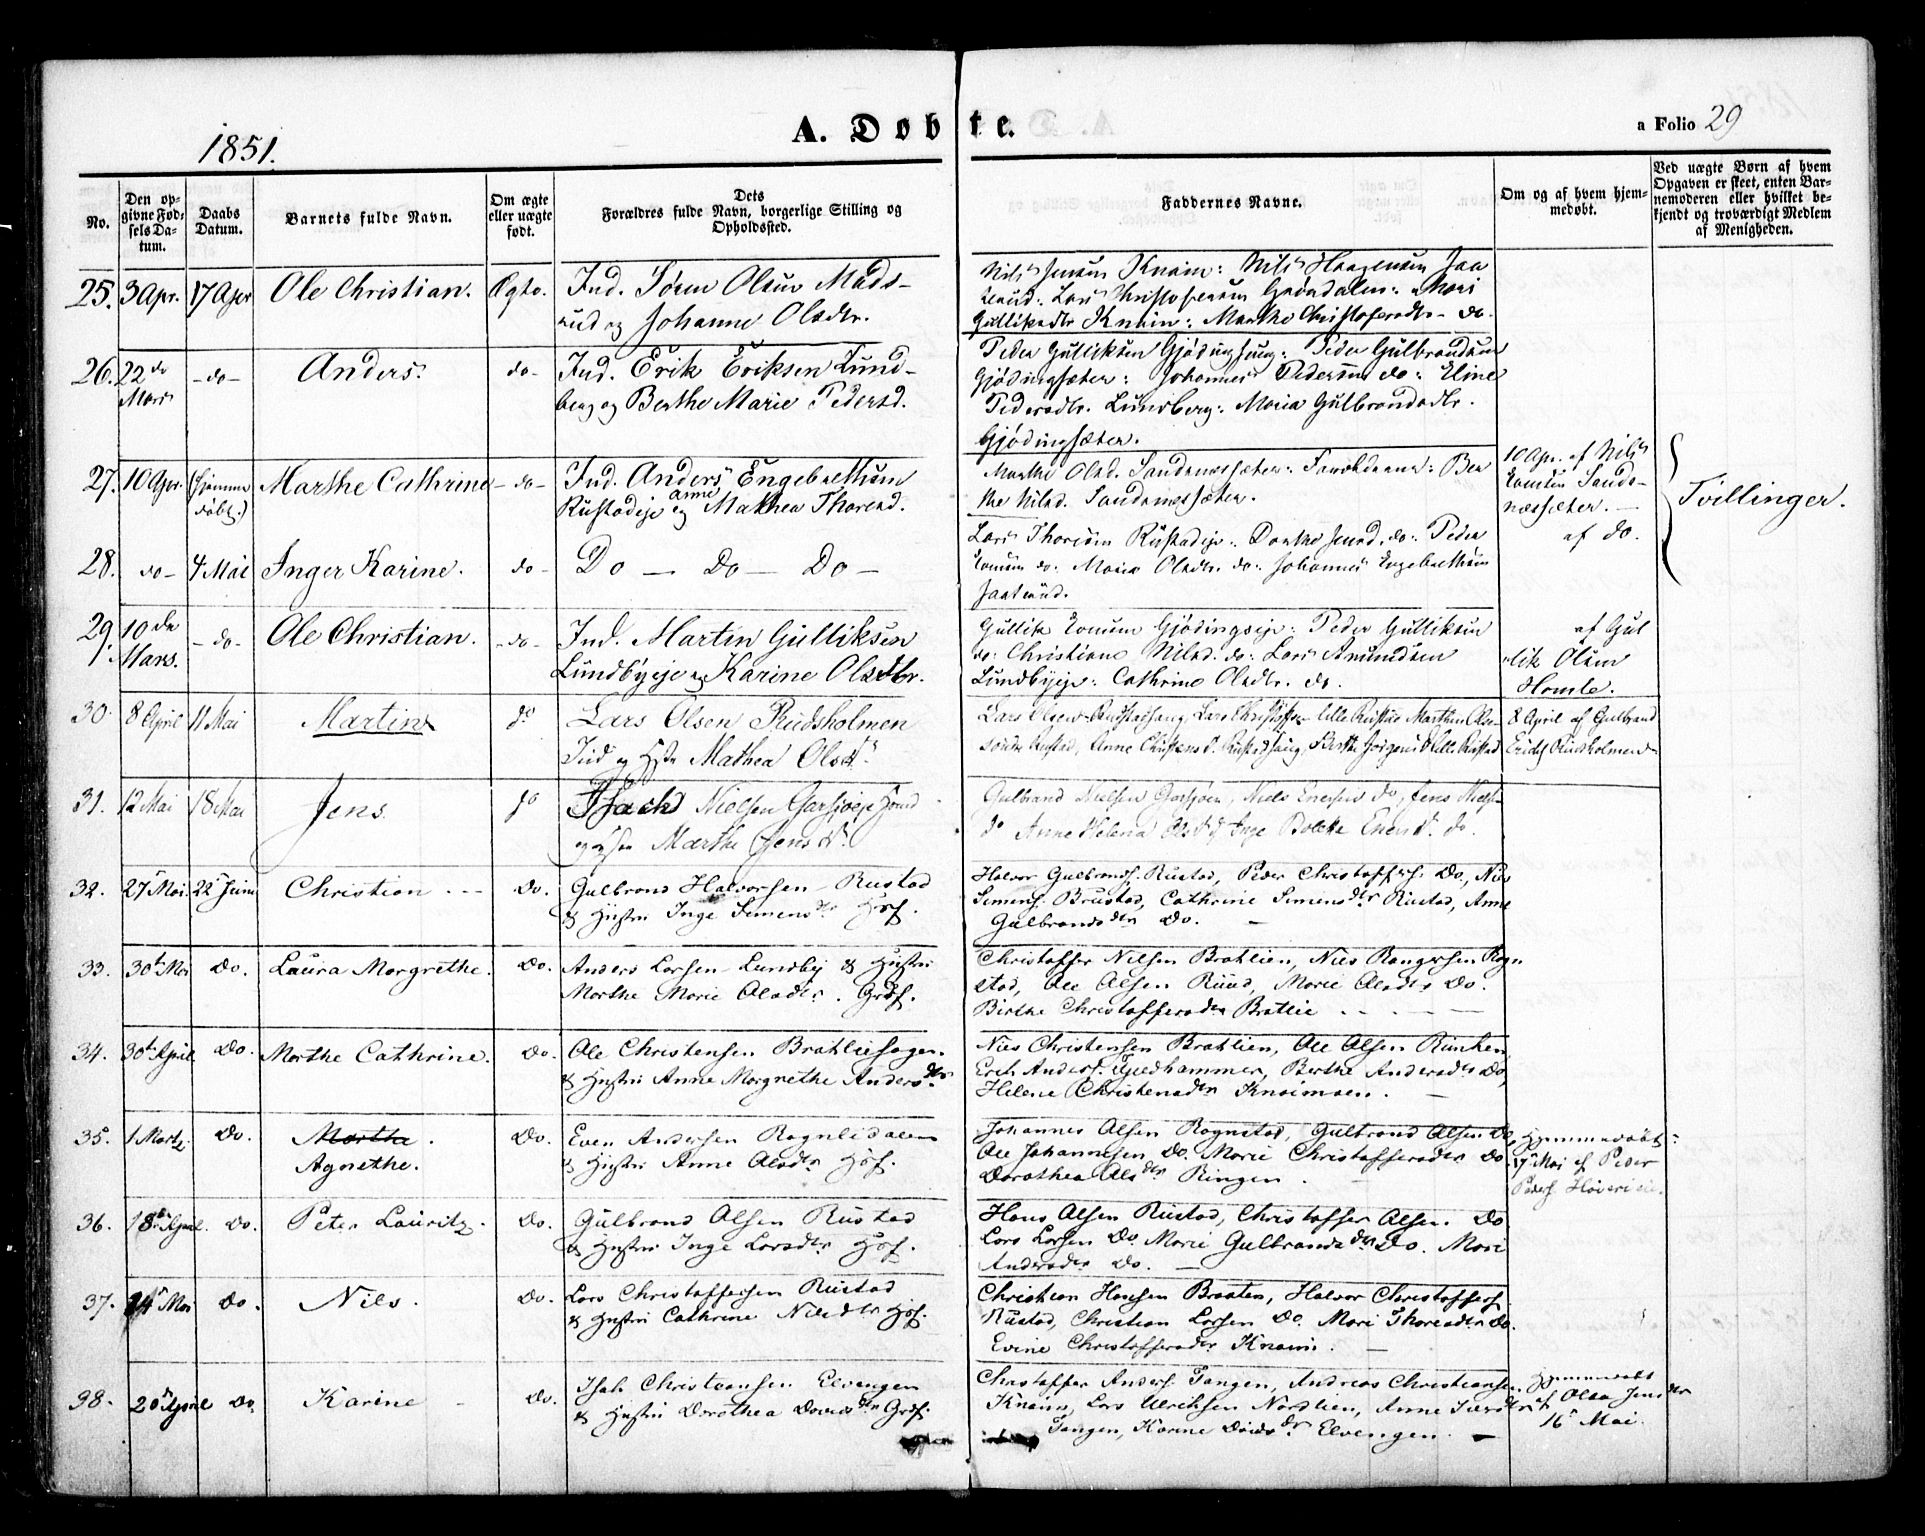 1851.
A. Døbte.
a Folio 29
No.
Den opgivne Fødsels Datum.
Daabs Datum.
Barnets fulde Navn.
Om ægte eller uægte født.
Dets Forældres fulde Navn, borgerlige Stilling og Opholdssted.
Faddernes Navne.
Om og af hvem hjemmedøbt.
Ved uægte Børn af hvem Opgaven er skeet, enten Barnemoderen eller hvilket bekjendt og troværdigt Medlem af Menigheden.
25. 3 Apr. 17 Apr Ole Christian. Ægte. Ind. Søren Olsen Mads-
rud og Johanne Olsdtr.
Nils Jensen Knaim: Nils Haagensen
Lars Christofersen Grøndalen: Mari
Gulliksdtr Knaim: Marthe Christofersdtr - do.
26. 22de Mars - do - Anders. do - Ind. Erik Eriksen Lund-
berg og Berthe Marie Pedersd.
Peder Gulliksen Gjødinghaug: Peder Gulbrandsen
Gjødingsæter: Johannes Pedersen do: Eline
Pedersdtr. Lundberg: Maria Gulbrandsdtr.
Gjødingsæter.
27. 10 Apr. (hjemme døbt.) Marthe Cathrine - do - Ind. Anders Engebrethsen
Rustadeje og Anne Mathea Thoresd.
Marthe Olsd. Sandsnæssæter: Ber
the Nilsd. Sandsnæssæter.
10 Apr. af Nils
Sands-
næssæter. -
Tvillinger.
28. do - 4 Mai Inger Karine. do - Do - Do - Do -
Lars Thoresen Rustadeje: Dorthe do: Peder
do: Maria Olsdtr. do: Johannes Engebrethsen
Saatrud.
af do.
29. 10de Mars. - do - Ole Christian. - do - Ind. Martin Gulliksen
Lundbyeje og Karine Olsdtr.
Gullik Gjødingseje: Peder Gulliksen
do: Christiane Nilsd. do: Lars Amundsen
Lundbyeje: Cathrine Olsdtr. do.
af Gul
lik Olsen
Homle.
30. 8 April 11 Mai Martin do Lars Olsen Rudsholmen
Ind og Hstr Mathea Olsdtr
Lars Olsen Rustadhaug, Lars Christoffers lille Rustad Marthin Ols-
søndre Rustad, Anne Christensd. Rustadhaug, Berthe Jørgensd lille Rustad
8 April af Gulbrand
Erichs Rudsholmen
31. 12 Mai 18 Mai Jens. do Nielsen Garsjøeje
og Marthe Jensdr.
Gulbrand Nielsen Garsjøen, Niels Enersen do, Jens Niels-
do Anne Helena Olsdr do, Inge Bolette Enersdr. do.
32. 27 Mai. 22 Juni Christian - - - Do. Gulbrand Halvorsen Rustad
& Hustru Inge Simensdtr Hof.
Halvor Gulbrands. Rustad, Peder Christoffers. Do., Nils
Simens. Brustad, Cathrine Simensdtr Rustad, Anne
Gulbrandsdtr Do. -
33. 30te Mai Do. Laura Margrethe. Do. Anders Larsen Lundby & Hustru
Marthe Marie Olsdtr. Grdf.
Christoffer Nilsen Bratlien, Nils Rangersen Rogn
stad, Ole Olsen Ruud, Marie Olsdtr Do.
Birthe Christoffersdtr Bratlie . . - - -
34. 30te April Do. Marthe Cathrine. Do. Ole Christensen Bratliehagen.
& Hustru Anne Margrethe Andersdtr.
Nils Christensen Bratlien, Ole Olsen Runken,
Erich Anders. Gjedhammer, Berthe Andersdtr Do,
Helene Christensdtr Knaimoen. -
35. 1 Marts. Do. Marthe.
Agnethe. Do. Even Andersen Rognlidalen
& Hustru Anne Olsdtr Hof.
Johannes Olsen Rognstad, Gulbrand Olsen Do,
Ole Johannesen Do. Marie Christoffersdtr Do.
Dorothea Olsdtr Ringen. -
Hjemmedøbt
17 Mai af Peder
Peders.
36. 18de April. Do. Peter Lauritz. Do. Gulbrand Olsen Rustad
& Hustru Inge Larsdtr Hof.
Hans Olsen Rustad, Christoffer Olsen. Do
Lars Larsen Do. Marie Gulbrandsdtr Do. Mari
Andersdtr Do. -
37. 24 Mai Do. Nils. Do. Lars Christoffersen Rustad
& Hustru Cathrine Nilsdtr Hof.
Christian Hansen Braaten, Halvor Christoffers.
Rustad, Christian Larsen Do. Mari Thoresdtr Do.
Evine Christoffersdtr Knaim. -
38. 20de April Do. Karine - Do. Isak Christiansen Elvengen
& Hustru Dorothea Davidsdtr Grdf.
Christoffer Anders. Tangen, Andreas Christiansen
Knaim, Lars Ulrichsen Nordlien, Anne
Tangen, Karine Davidsdr Elvengen. -
Hjemmedøbt
af Olea Jensdtr
16 Mai.